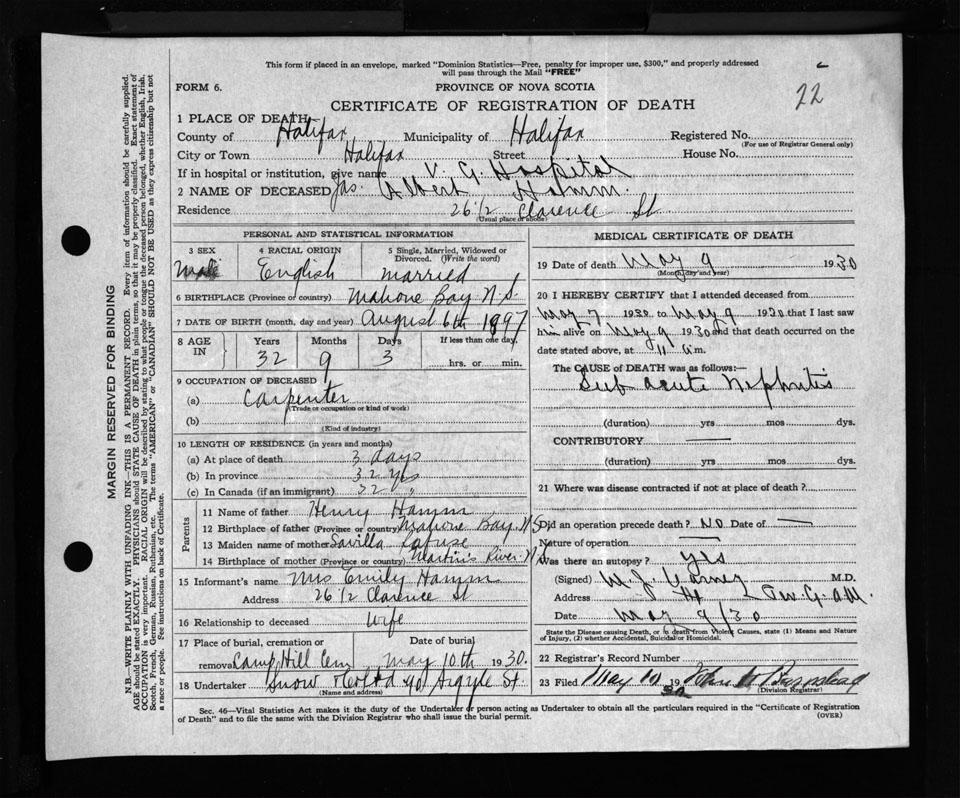 This form if placed in an envelope, marked "Dominion Statistics—Free, penalty for improper use, $300," and properly addressed
will pass through the Mail "FREE"
FORM 6.
PROVINCE OF NOVA SCOTIA
22
CERTIFICATE OF REGISTRATION OF DEATH
1 PLACE OF DEATH
County of Halifax Municipality of Halifax Registered No.
(For use of Registrar General only)
City or Town Halifax Street House No.
If in hospital or institution, give name V. G. Hospital
2 NAME OF DECEASED Jas. Albert Hamm.
Residence 26 1/2 Clarence St
(Usual place of abode)
PERSONAL AND STATISTICAL INFORMATION
3 SEX 4 RACIAL ORIGIN 5 Single, Married, Widowed or
Divorced. (Write the word)
Male English married
6 BIRTHPLACE (Province or country) Mahone Bay N.S.
7 DATE OF BIRTH (month, day and year) August 6th 1897
8 AGE IN Years Months Days If less than one day,
32 9 3 hrs. or min.
9 OCCUPATION OF DECEASED
(a) Carpenter
(Trade or occupation or kind of work)
(b)
(Kind of industry)
10 LENGTH OF RESIDENCE (in years and months)
(a) At place of death 3 days
(b) In province 32 yrs
(c) In Canada (if an immigrant) 32 "
Parents
11 Name of father Henry Hamm
12 Birthplace of father (Province or country) Mahone Bay. N S
13 Maiden name of mother Savilla
14 Birthplace of mother (Province or country) Martin's River. N.S.
15 Informant's name Mrs Emily Hamm
Address 26 1/2 Clarence St
16 Relationship to deceased wife
17 Place of burial, cremation or Date of burial
removal Camp Hill Cem May 10th 1930.
18 Undertaker Snow 90 Argyle St.
(Name and address)
MEDICAL CERTIFICATE OF DEATH
19 Date of death May 9 1930
(Month, day and year)
20 I HEREBY CERTIFY that I attended deceased from
May 7 1930 to May 9 1930 that I last saw
him alive on May 9 1930 and that death occurred on
date stated above, at 11 a.m.
The CAUSE OF DEATH was as follows:—
Sub acute Nephritis
(duration) yrs mos dys.
CONTRIBUTORY —
(duration) yrs mos dys.
21 Where was disease contracted if not at place of death?
Did an operation precede death? No Date of —
Nature of operation —
Was there an autopsy? yes
(Signed) W. J. M.D.
Address
Date May 9/30
State the Disease causing Death, or in death from Violent Causes, state (1) Means and Nature
of Injury, (2) whether Accidental, Suicidal or Homicidal.
22 Registrar's Record Number
23 Filed May 10 1930 John
(Division Registrar)
Sec. 46—Vital Statistics Act makes it the duty of the Undertaker or person acting as Undertaker to obtain all the particulars required in the "Certificate of Registration
of Death" and to file the same with the Division Registrar who shall issue the burial permit.
(OVER)
MARGIN RESERVED FOR BINDING
N.B.—WRITE PLAINLY WITH UNFADING INK—THIS IS A PERMANENT RECORD. Every item of information should be carefully supplied.
AGE should be stated EXACTLY. PHYSICIANS should STATE CAUSE OF DEATH in plain terms, so that it may be properly classified. Exact statement of
OCCUPATION is very important. RACIAL ORIGIN will be described by stating to what people or tongue the deceased person belonged, whether English, Irish,
Scotch, French, German, Russian, Ruthenian, etc. The terms "AMERICAN" or "CANADIAN" SHOULD NOT BE USED as they express citizenship but not
a race or people. See instructions on back of Certificate.